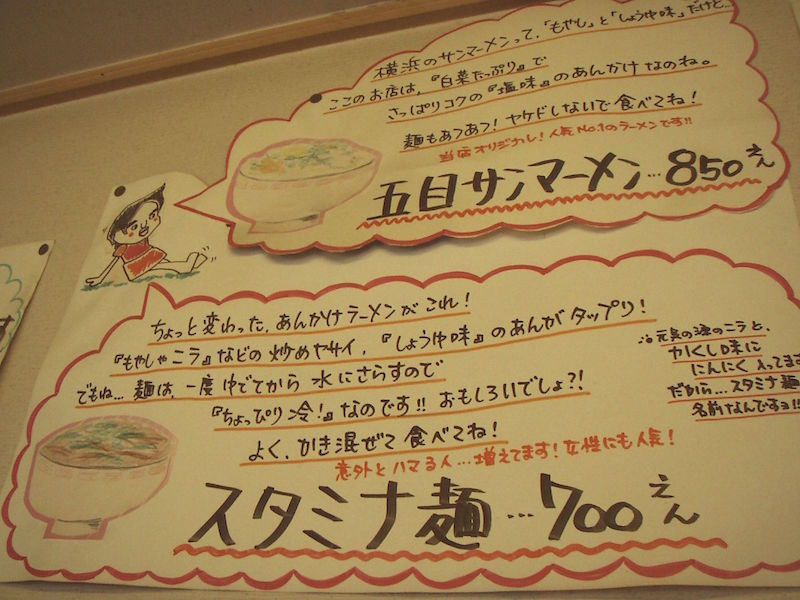 横浜のサンマーメンって、「もやし」と「しょうゆ味」だけど…
ここのお店は、『白菜たっぷり』で
さっぱりコクの『塩味』のあんかけなのね。
麺もあつあつ!ヤケドしないで食べてね!
当店オリジナル!人気No.1のラーメンです!!
五目サンマーメン…850えん
ちょっと変わった、あんかけラーメンがこれ!
『もやしゃニラ』などの炒めヤサイ、『しょうゆ味』のあんがタップリ!
でもね…麺は、一度ゆでてから水にさらすので
『ちょっぴり冷!』なのです!!おもしろいでしょ?!
よく、かき混ぜて食べてね!
意外とハマる人…増えてます!女性にも人気!
スタミナ麺…700えん
元気の源のニラと、
カくし味に
にんにく入ってます
だから…スタミナ麺
名前なんですョ!!
す